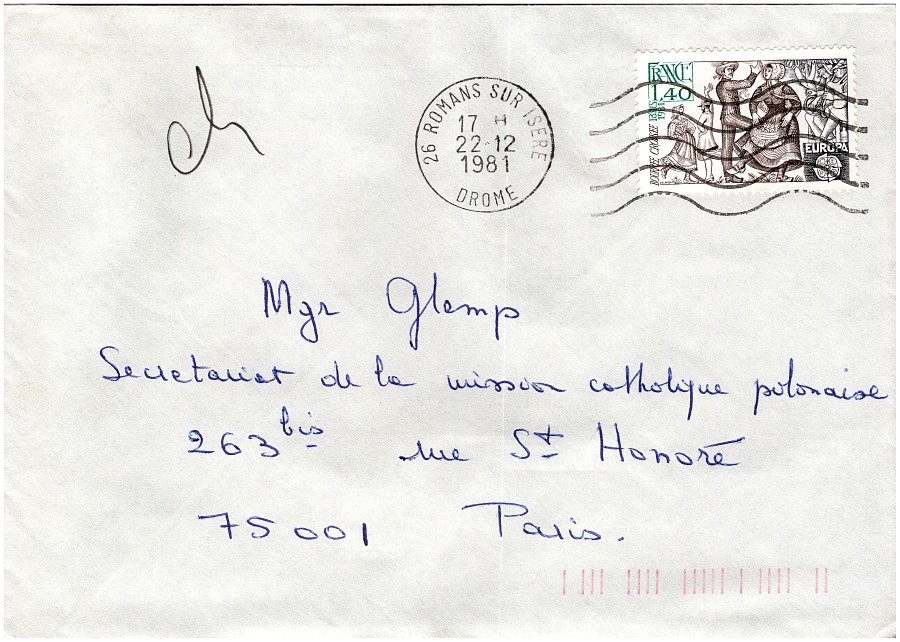 ch
26 ROMANS SUR ISERE
17 H
22-12
1981
DROME
FRANCE
1,40
BOURRÉE CROISÉE
POSTES 1981
EUROPA
Mgr Glemp
Secretariat de la mission catholique polonaise
263 bis rue St Honoré
75001 Paris.